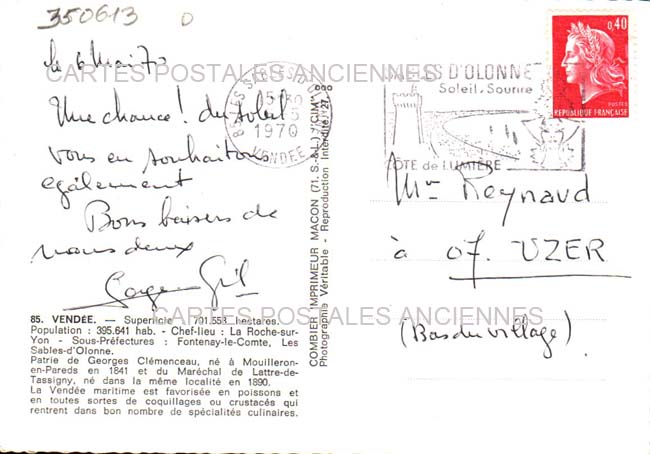 350613 D
le 6 Mai 70
Une chance! du soleil
vous en souhaitons
également
Bons baisers de
nous deux
CARTES POSTALES ANCIENNES
LES SABLES
1970
VENDEE
D'OLONNE
Soleil, Sourire
CÔTE de LUMIÈRE
0,40
POSTES
REPUBLIQUE FRANÇAISE
COMBIER IMPRIMEUR MACON (71. S.-&-L.) "CIM"
Photographie Véritable - Reproduction Interdite
Mr Reynaud
à 07. UZER
(Bas du village)
CARTES POSTALES ANCIENNES
85. VENDÉE. — Superficie : 701.553 hectares.
Population : 395.641 hab. - Chef-lieu : La Roche-sur-
Yon - Sous-Préfectures : Fontenay-le-Comte, Les
Sables-d'Olonne.
Patrie de Georges Clémenceau, né à Mouilleron-
en-Pareds en 1841 et du Maréchal de Lattre-de-
Tassigny, né dans la même localité en 1890.
La Vendée maritime est favorisée en poissons et
en toutes sortes de coquillages ou crustacés qui
rentrent dans bon nombre de spécialités culinaires.